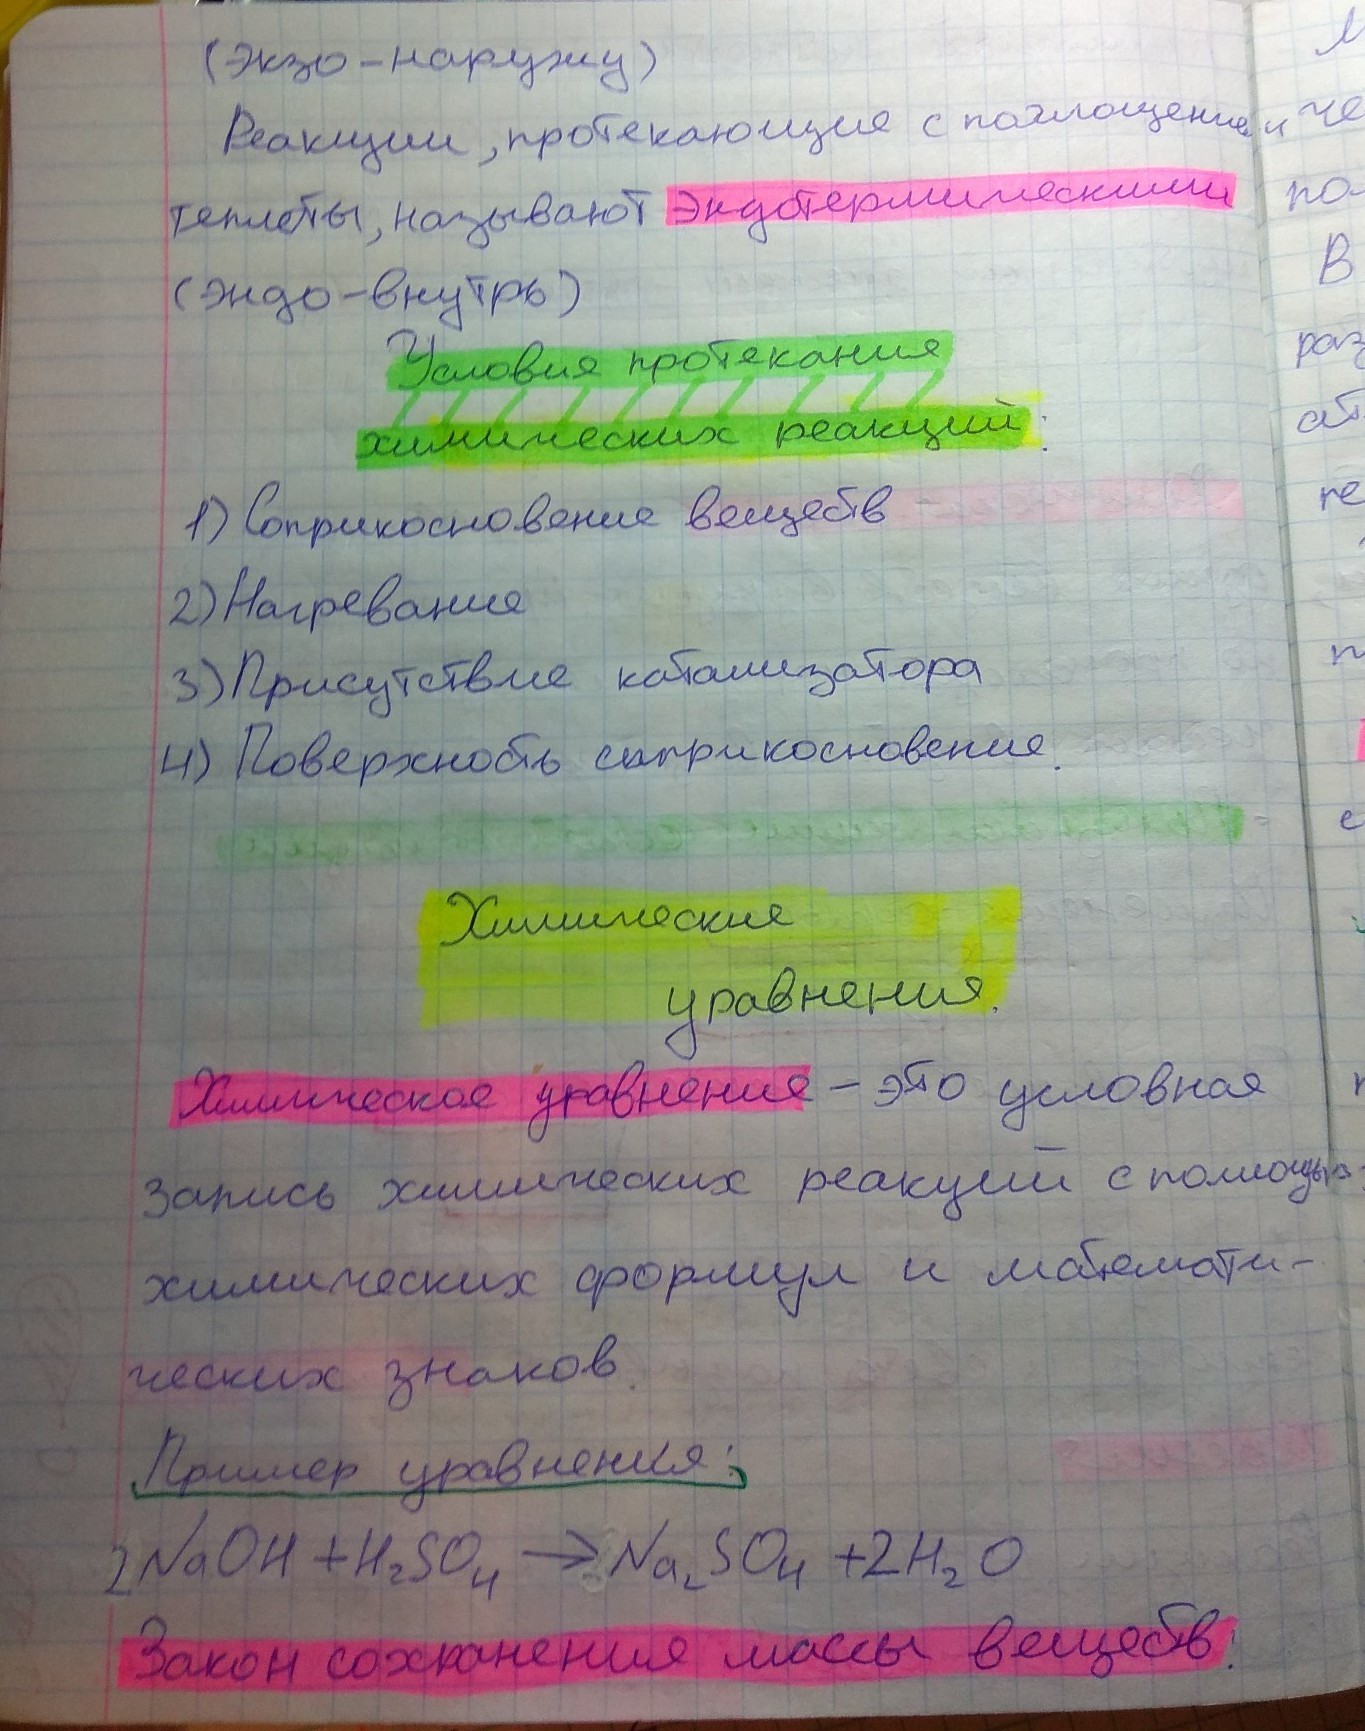 (экзо-наружу)
Реакции, протекающие с поглощением
теплоты, называют эндотермическими
(эндо-внутрь)
Условия протекания
химических реакций:
1) Соприкосновение веществ
2) Нагревание
3) Присутствие катализатора
4) Поверхность саприкосновение.
Химические
уравнения.
Химическое уравнения - это условная
запись химических реакций с помощью
химических формул и математи-
ческих знаков.
Пример уравнения:
2NaOH + H₂SO₄ → Na₂SO₄ + 2H₂O
Закон сохранения массы веществ: